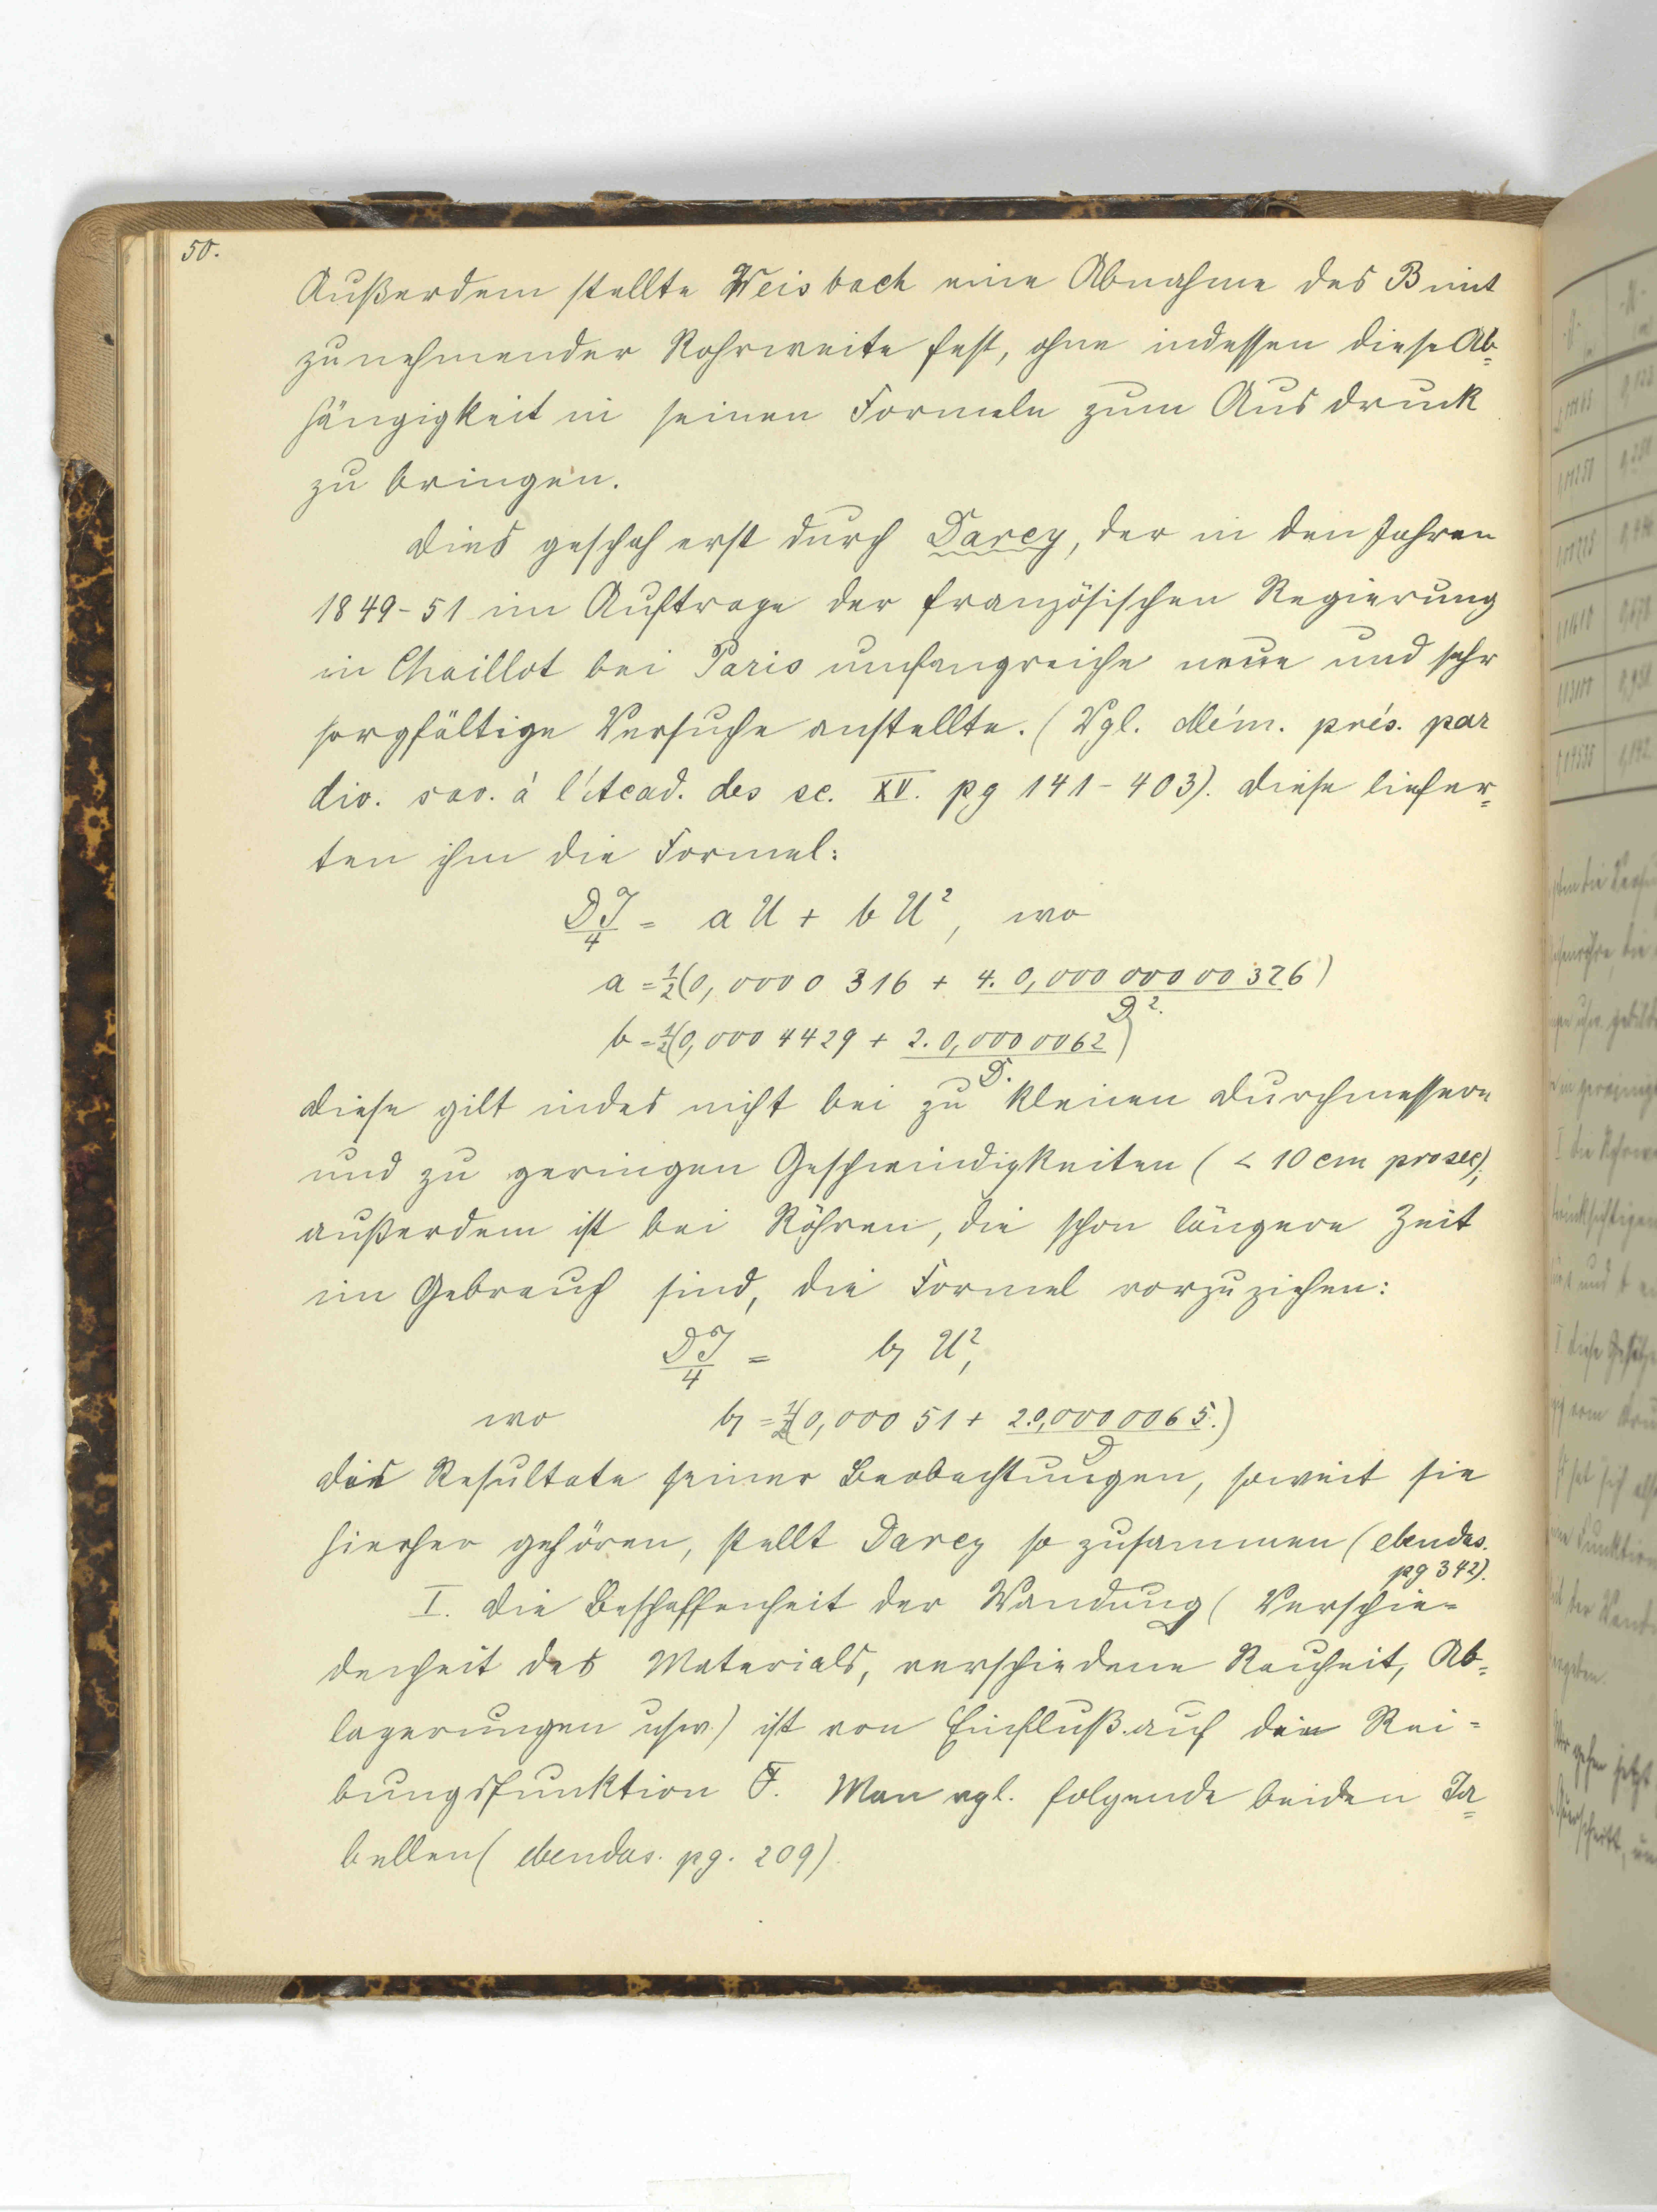 50.
Außerdem stellte Weisbach eine Abnahme des B mit
zunehmender Rohrweite fest, ohne indessen diese Ab=
hängigkeit in seinen Formeln zum Ausdruck
zu bringen.
Dies geschah erst durch Darcy, der in den Jahren
1849-51 im Auftrage der französischen Regierung
in Chaillot bei Paris umfangreiche neue und sehr
sorgfältige Versuche anstellte. (Vgl. Mém. prés. par
div. sav. à l'Acad. des sc. XV. pg 141-403). Diese liefer=
ten ihm die Formel:
DJ/4 = a U + b U², wo
a = 1/2 (0,0000316 + 4. 0,00000000326/D².)
b = 1/2 (0,0004429 + 2. 0,0000062/D.)
Diese gilt indes nicht bei zu kleinen Durchmessern
und zu geringen Geschwindigkeiten (< 10 cm pro sec),
außerdem ist bei Röhren, die schon längere Zeit
im Gebrauch sind, die Formel vorzuziehen:
DJ/4 = b₁ U²,
wo b₁ = 1/2 (0,00051 + 2.0,0000065./D)
Die Resultate seiner Beobachtungen, soweit sie
hierher gehören, stellt Darcy so zusammen (ebendas.
pg 342).
I. Die Beschaffenheit der Wandung (Verschie-
denheit des Materials, verschiedene Rauheit, Ab=
lagerungen usw.) ist von Einfluß auf die Rei=
bungsfunktion F. Man vgl. folgende beiden Ta=
bellen (ebendas. pg. 209).